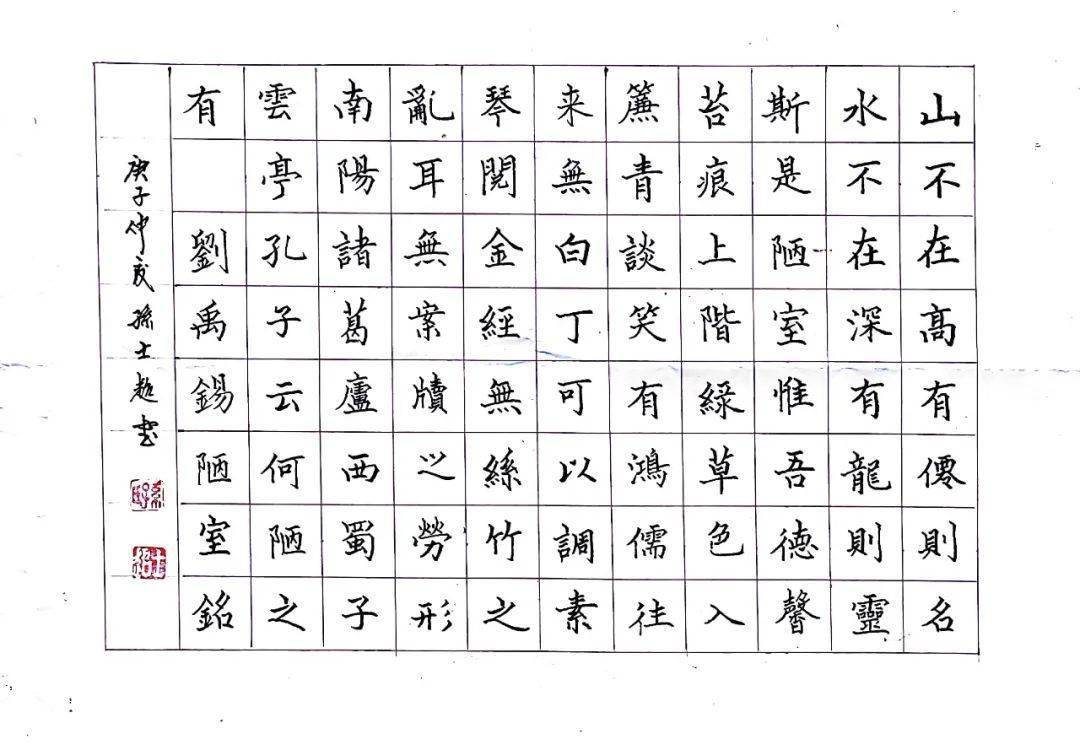 山不在高有僊則名
水不在深有龍則靈
斯是陋室惟吾德馨
苔痕上階緑草色入
簾青談笑有鴻儒往
来無白丁可以調素
琴閲金經無絲竹之
亂耳無案牘之勞形
南陽諸葛廬西蜀子
雲亭孔子云何陋之
有 劉禹錫陋室銘
庚子仲夏孫士超书